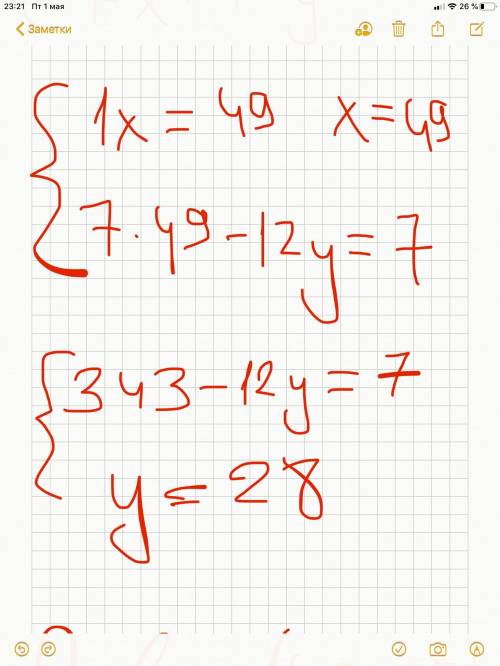 23:21 Пт 1 мая 26 %
Заметки
1x = 49 x = 49
7 · 49 - 12y = 7
343 - 12y = 7
y = 28